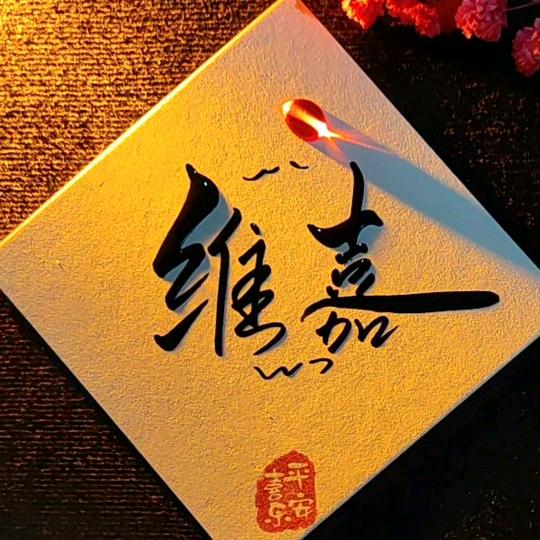 维嘉
平安
喜乐